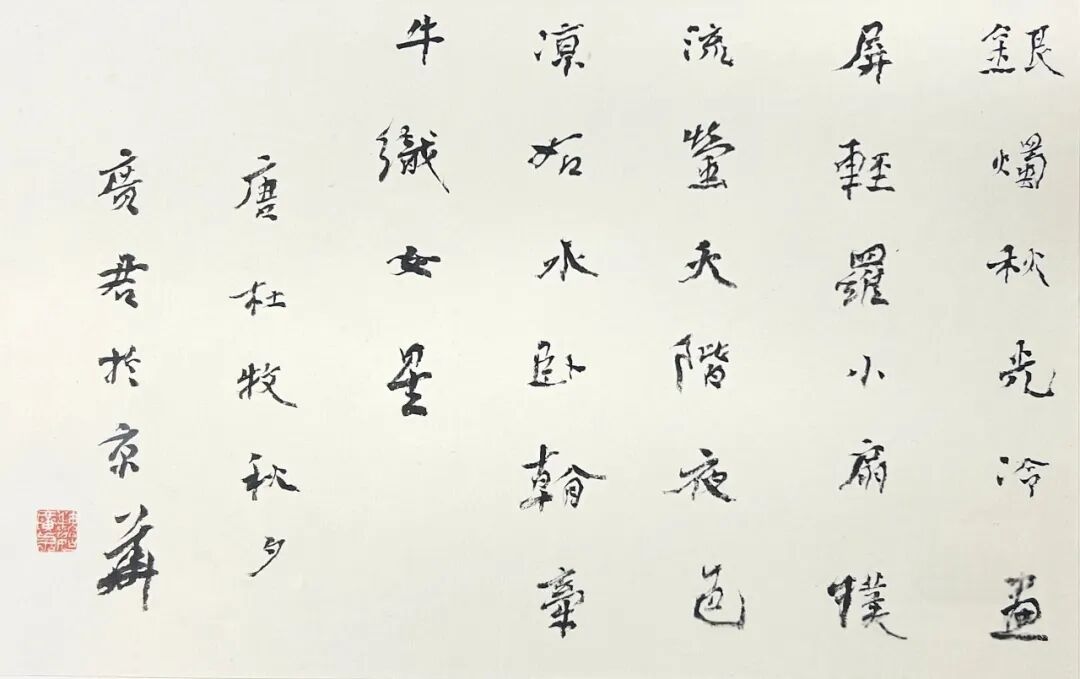 銀燭秋光冷畫
屏輕羅小扇撲
流螢天階夜色
凉如水卧看牽
牛織女星
唐杜牧秋夕
廣君於京華